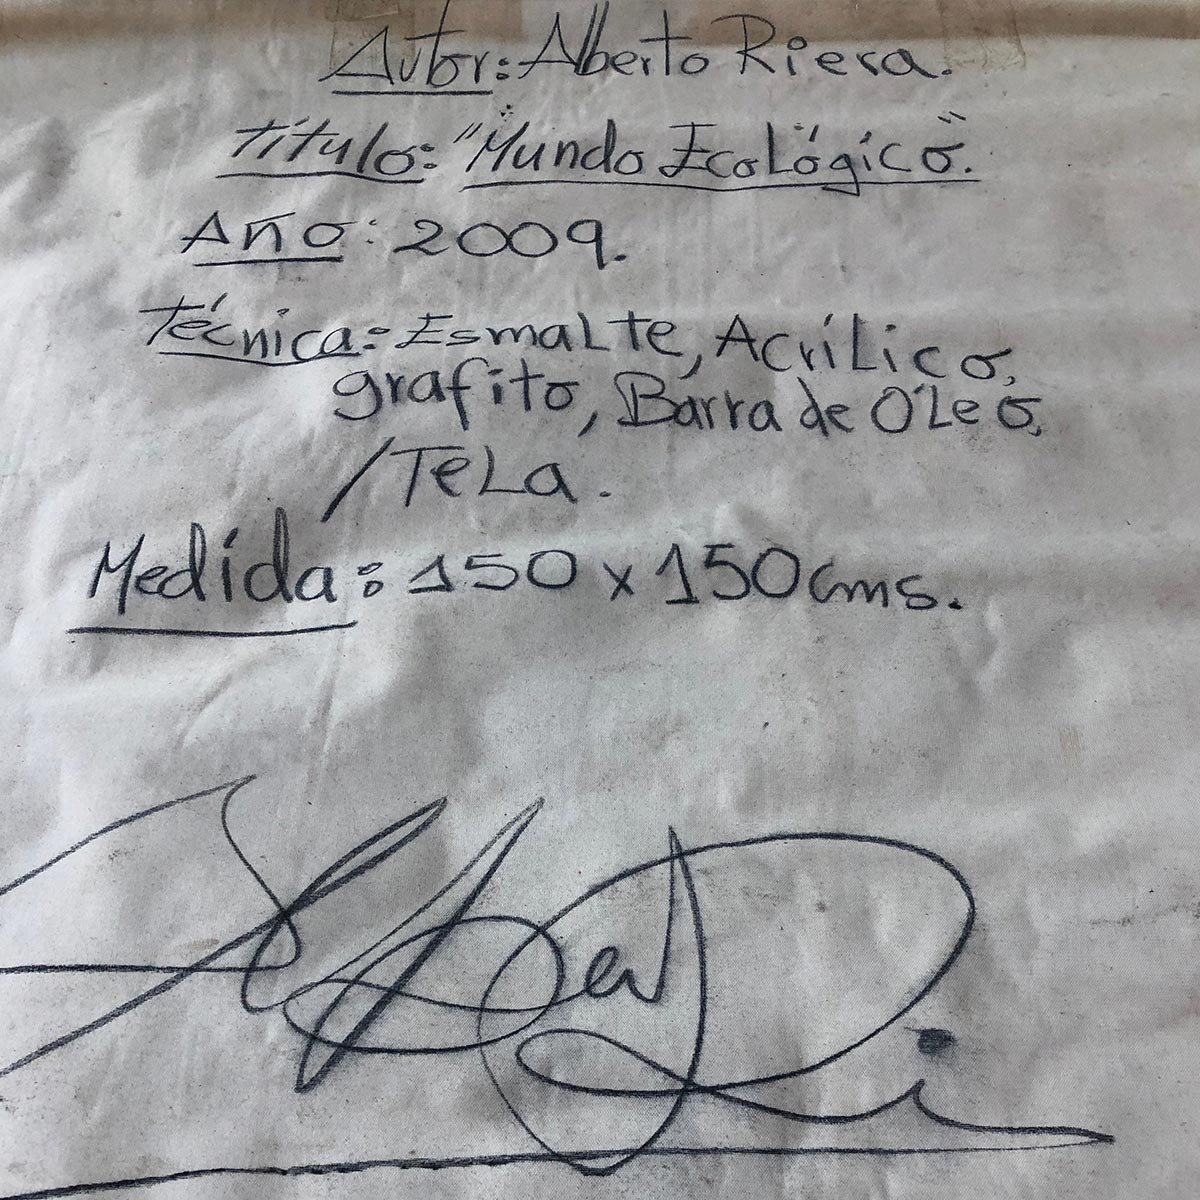 Autor: Alberto Riera.
Título: "Mundo Ecológico".
Año: 2009.
Técnica: Esmalte, Acrílico,
grafito, Barra de Óleo,
/Tela.
Medida: 150 x 150 cms.